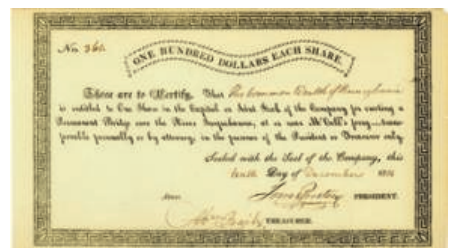 No. 360
ONE HUNDRED DOLLARS EACH SHARE.
These are to Certify, That The Common Wealth of Pennsylvania
is entitled to One Share in the Capital or Joint Stock of the Company for erecting a
Permanent Bridge over the River Susquehanna, at or near McCall's ferry
ferable personally or by attorney, in the presence of the President or Treasurer only.
Sealed with the Seal of the Company, this
tenth Day of December
PRESIDENT.
TREASURER.